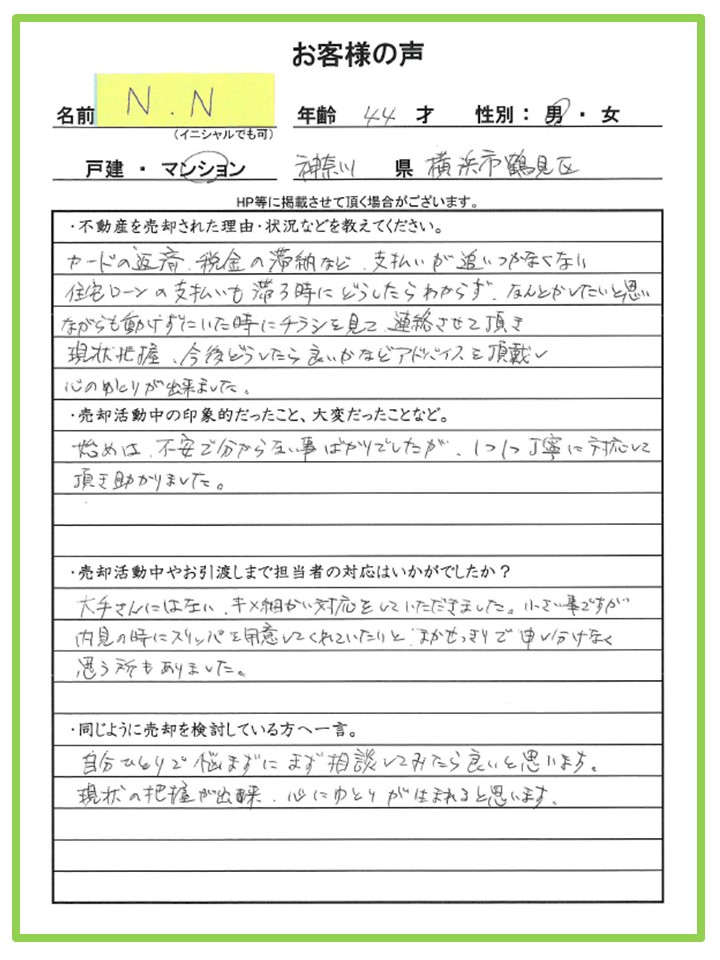 お客様の声
名前 N.N 年齢 44 才 性別: 男・女
(イニシャルでも可)
戸建・マンション 神奈川 県 横浜市鶴見区
HP等に掲載させて頂く場合がございます。
・不動産を売却された理由・状況などを教えてください。
カードの返済、税金の滞納など、支払いが追いつかなくない
住宅ローンの支払いも滞る時にどうしたらわからず、なんとかしたいと思い
ながらも動けずにいた時にチラシを見て、連絡させて頂き
現状把握、今後どうしたら良いかなどアドバイスを頂戴し
心のゆとりが出来ました。
・売却活動中の印象的だったこと、大変だったことなど。
始めは、不安で分からない事ばかりでしたが、1つ1つ丁寧に対応して
頂き助かりました。
・売却活動中やお引渡しまで担当者の対応はいかがでしたか?
大手さんにはない、キメ細かい対応をしていただきました。小さい事ですが
内見の時にスリッパを用意してくれていたりと、まかせっきりで申し分けなく
思う所もありました。
・同じように売却を検討している方へ一言。
自分ひとりで悩まずにまず相談してみたら良いと思います。
現状の把握が出来、心にゆとりが生まれると思います。